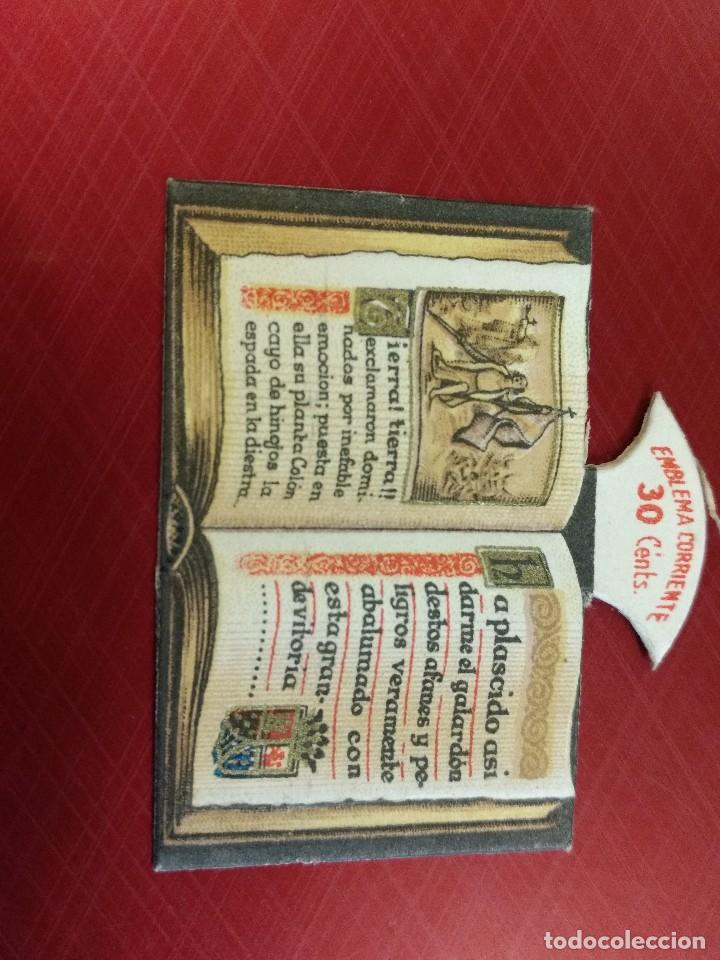 EMBLEMA CORRIENTE
30 Cénts.
Tierra! tierra!!
exclamaron domi-
nados por inefable
emocion; puesta en
ella su planta Colón
cayo de hinojos la
espada en la diestra
ha plascido asi
darme el galardón
destos afanes y pe-
ligros veramente
abalumado con
esta gran-
de vitoria
..........
todocoleccion
todocoleccion.net